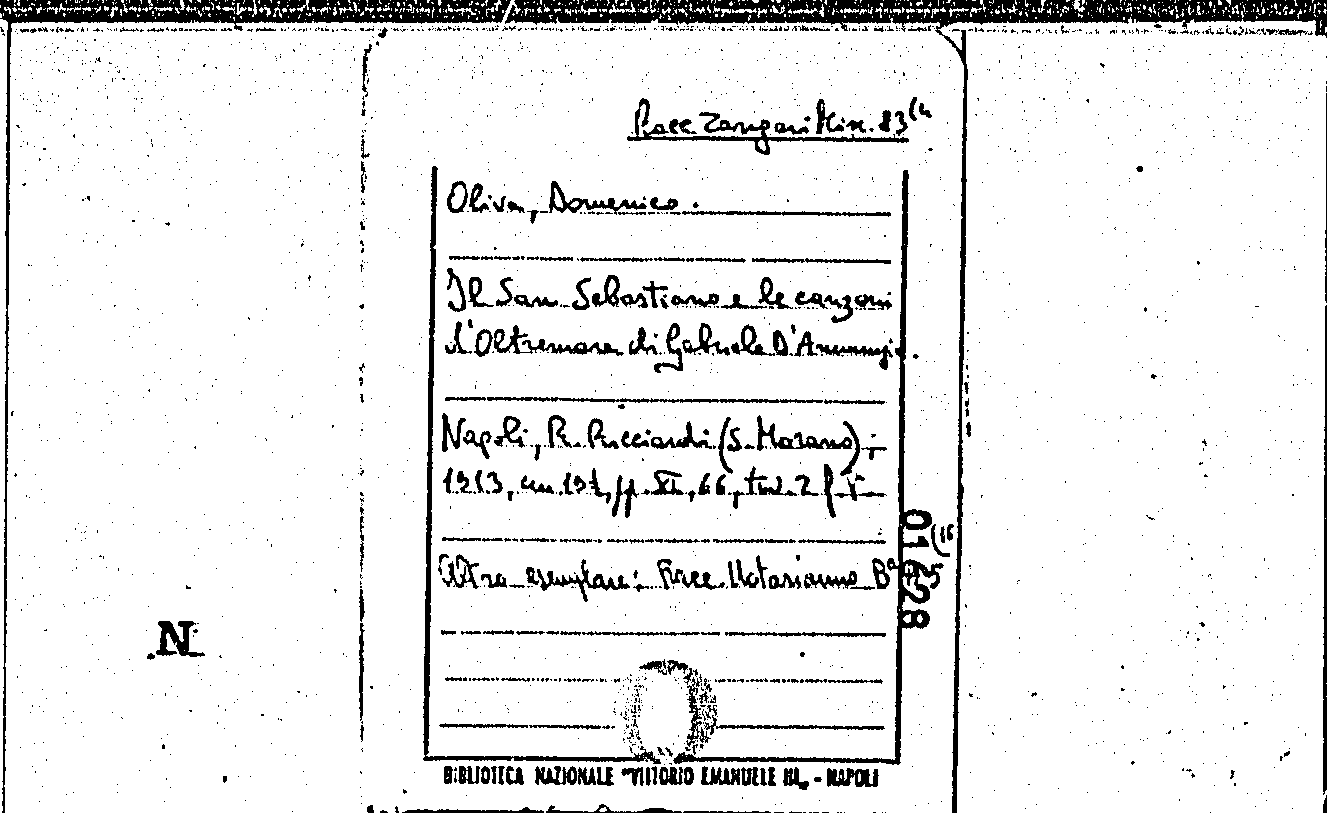 Race Zangari Misc. 83(4
Oliva, Domenico.
Il San Sebastiano e le canzoni
d'Oltremare di Gabriele D'Annunzio.
Napoli, R. Ricciardi (S. Morano),
1913, cm. 19½, pp. XI, 66, tav. 2 f. t.
Altro esemplare: Race. Notarianno Bª
(16
01228
N
BIBLIOTECA NAZIONALE "VITTORIO EMANUELE III„ - NAPOLI